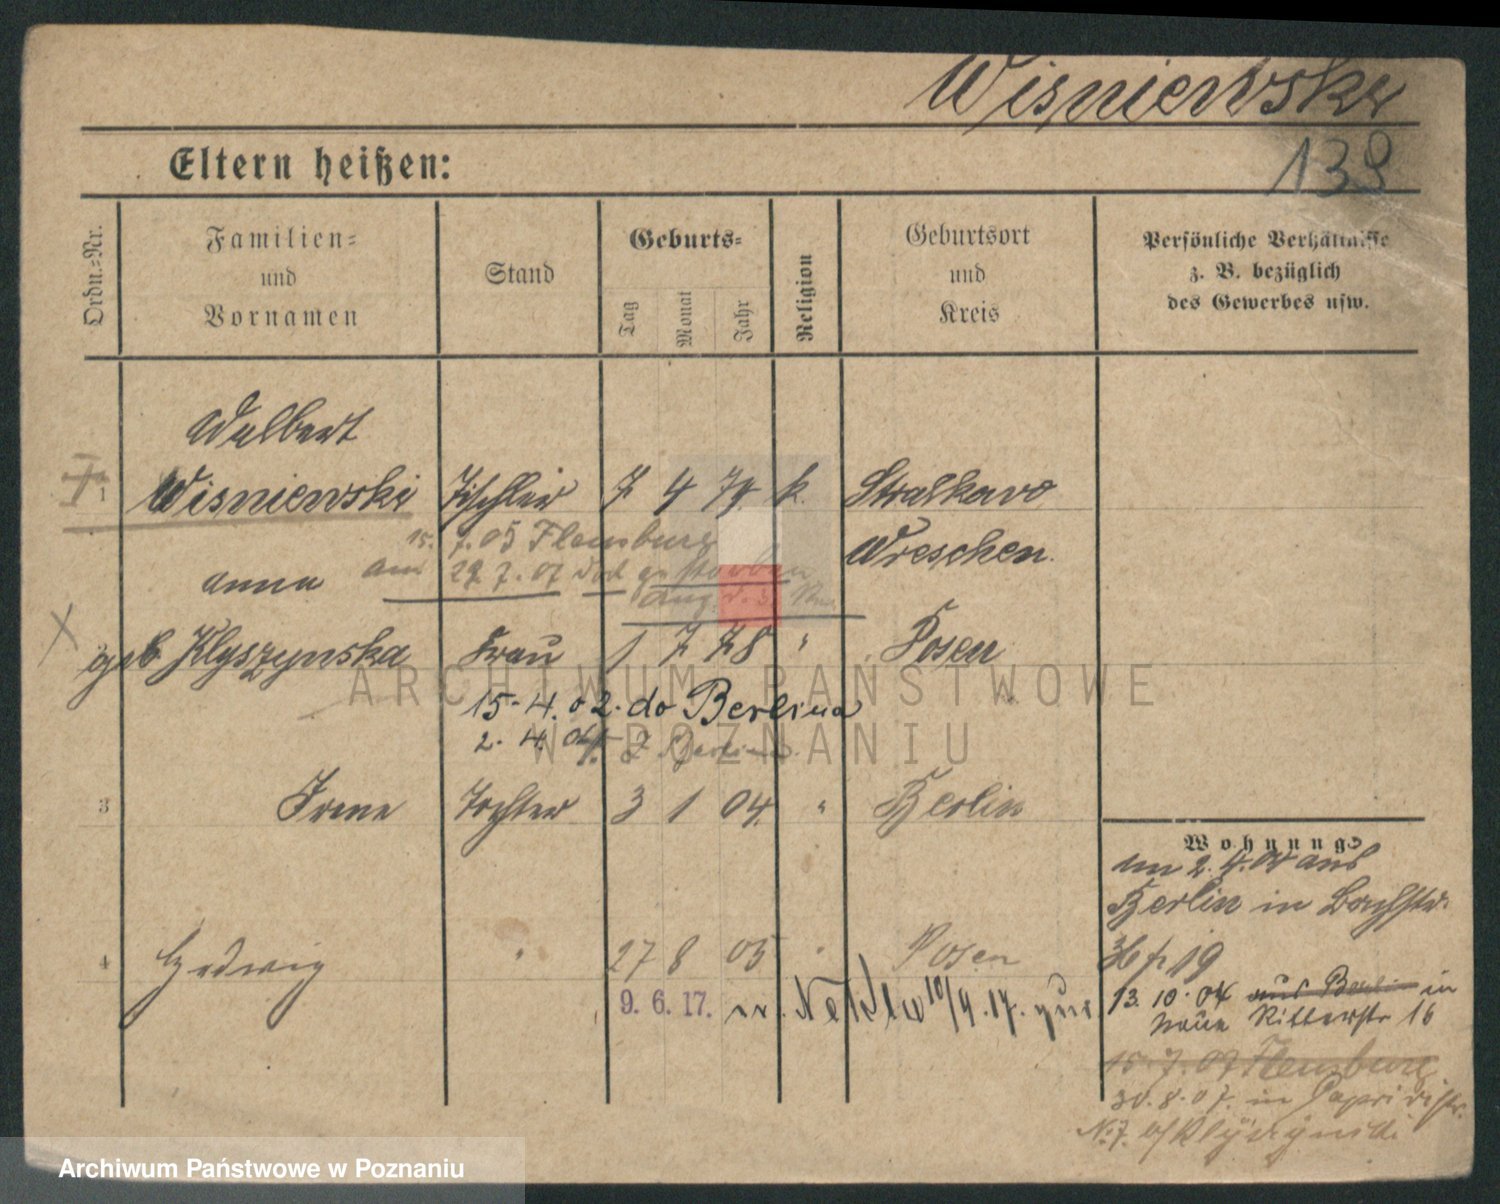 Wisniewski
139
Eltern heißen:
Ordn.-Nr.
Familien-
und
Vornamen
Stand
Geburts-
Tag
Monat
Jahr
Religion
Geburtsort
und
Kreis
Persönliche Verhältnisse
z. B. bezüglich
des Gewerbes usw.
Adalbert
1 Wisniewski Tischler 7 4 74 k. Stralkowo
15. 7. 05 Flensburg Wreschen
Anna am 29. 7. 07 gestorben
geb Klyszynska Frau 1 7 78 " Posen
15. 4. 02. do Berlina
2. 4. 04 z Berlina
3 Irene Tochter 3 1 04. " Berlin
Wohnung
am 2. 4. 04 aus
Berlin in Bachstr.
4 Hedwig " 27 8 05 " Posen
19
9. 6. 17. n. Nekla 10/4. 17.
13. 10. 04 aus Berlin in
Ritterstr 16
15. 7. 07 Flensburg
30. 8. 07. in
ARCHIWUM PAŃSTWOWE
W POZNANIU
Archiwum Państwowe w Poznaniu